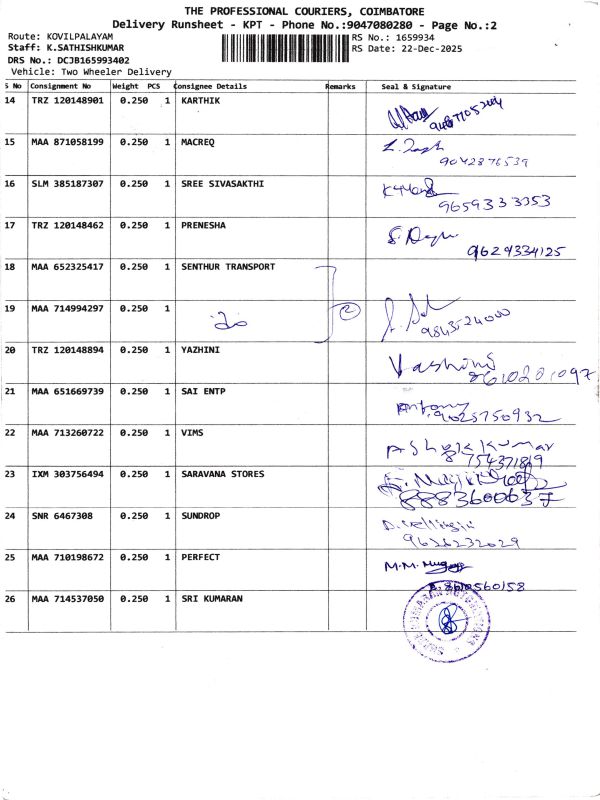 THE PROFESSIONAL COURIERS, COIMBATORE
Delivery Runsheet - KPT - Phone No.:9047080280 - Page No.:2
Route: KOVILPALAYAM
RS No.: 1659934
Staff: K.SATHISHKUMAR
RS Date: 22-Dec-2025
DRS No.: DCJB165993402
Vehicle: Two Wheeler Delivery
S No Consignment No Weight PCS Consignee Details Remarks Seal & Signature
14 TRZ 120148901 0.250 1 KARTHIK
15 MAA 871058199 0.250 1 MACREQ
9042876539
16 SLM 385187307 0.250 1 SREE SIVASAKTHI
9659333353
17 TRZ 120148462 0.250 1 PRENESHA
9629334125
18 MAA 652325417 0.250 1 SENTHUR TRANSPORT
19 MAA 714994297 0.250 1
2
9843524000
20 TRZ 120148894 0.250 1 YAZHINI
Yashini
8610201097
21 MAA 651669739 0.250 1 SAI ENTP
Antony
9025750932
22 MAA 713260722 0.250 1 VIMS
Ashok Kumar
8754371819
23 IXM 303756494 0.250 1 SARAVANA STORES
8883600637
24 SNR 6467308 0.250 1 SUNDROP
9626232029
25 MAA 710198672 0.250 1 PERFECT
M.M.
8610560158
26 MAA 714537050 0.250 1 SRI KUMARAN